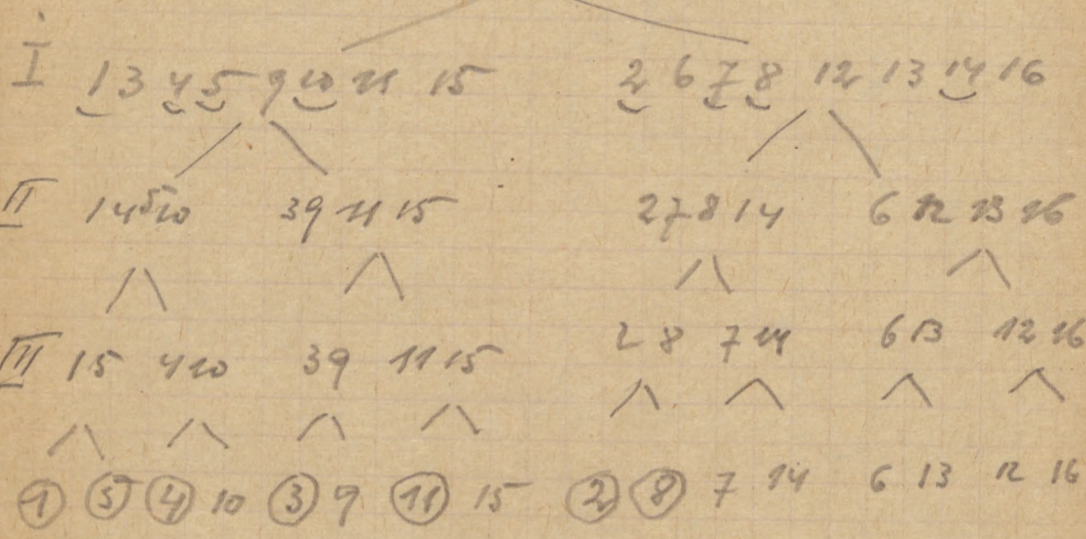 I 1 3 4 5 9 10 11 15 2 6 7 8 12 13 14 16
II 1 4 5 10 3 9 11 15 2 7 8 14 6 12 13 16
III 1 5 4 10 3 9 11 15 2 8 7 14 6 13 12 16
1 5 4 10 3 9 11 15 2 8 7 14 6 13 12 16